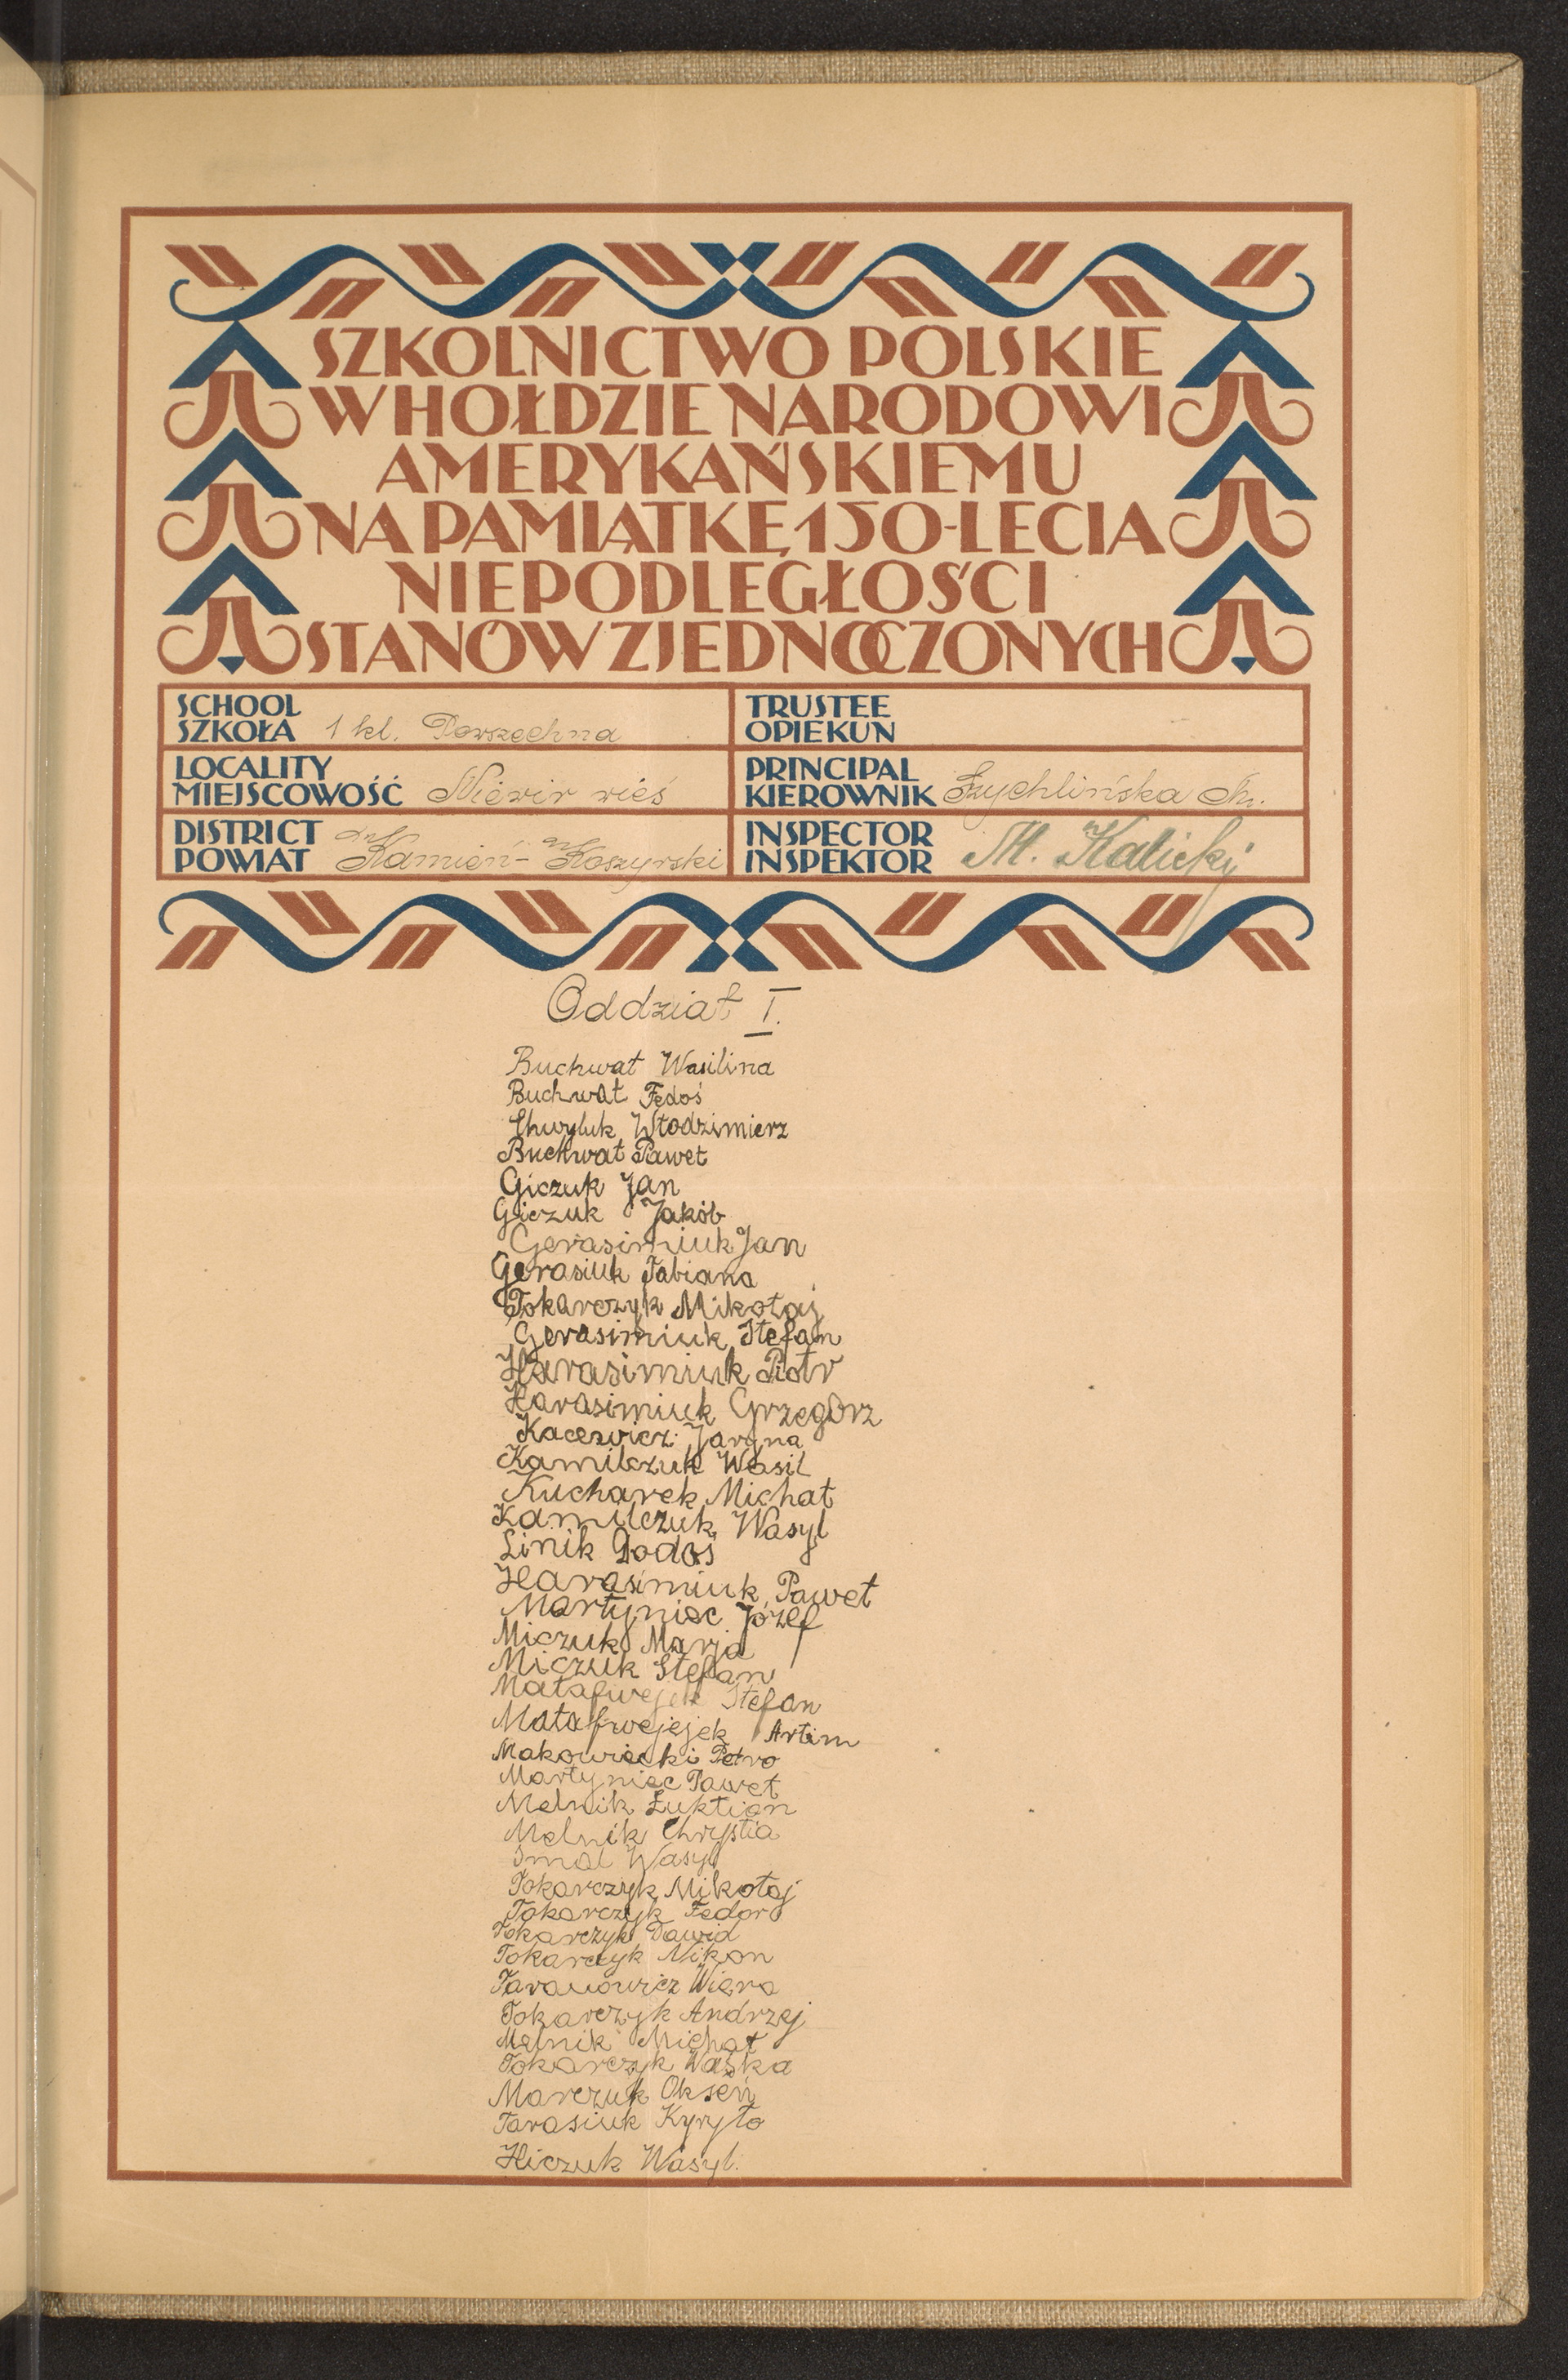 SZKOLNICTWO POLSKIE
W HOŁDZIE NARODOWI
AMERYKAŃSKIEMU
NA PAMIĄTKĘ 150-LECIA
NIEPODLEGŁOŚCI
STANÓW ZJEDNOCZONYCH
SCHOOL
SZKOŁA 1 kl. Powszechna
TRUSTEE
OPIEKUN
LOCALITY
MIEJSCOWOŚĆ Niewir wieś
PRINCIPAL
KIEROWNIK Szychlińska M.
DISTRICT
POWIAT Kamień-Koszyrski
INSPECTOR
INSPEKTOR M. Kalicki
Oddział I.
Buchwał Wasilina
Buchwał Fedoś
Chwyluk Włodzimierz
Buchwał Paweł
Giczuk Jan
Giczuk Jakób
Gerasimiuk Jan
Gerasiuk Tabiana
Tokarczyk Mikołaj
Gerasimiuk Stefan
Harasimiuk Piotr
Harasimiuk Grzegorz
Kacewicz Jaryna
Kamilczuk Wasil
Kucharek Michał
Kamilczuk Wasyl
Linik Dodoś
Harasimiuk Paweł
Martyniec Józef
Miczuk Marja
Miczuk Stefan
Stefan
Artim
Makowiecki Petro
Martyniec Paweł
Melnik Łuktian
Melnik Chrystia
Smal Wasyl
Tokarczyk Mikołaj
Tokarczyk Fedor
Tokarczyk Dawid
Tokarczyk Nikon
Taranowicz Wiera
Tokarczyk Andrzej
Melnik Michał
Tokarczyk Waśka
Marczuk Okseń
Tarasiuk Kyryło
Hiczuk Wasyl.